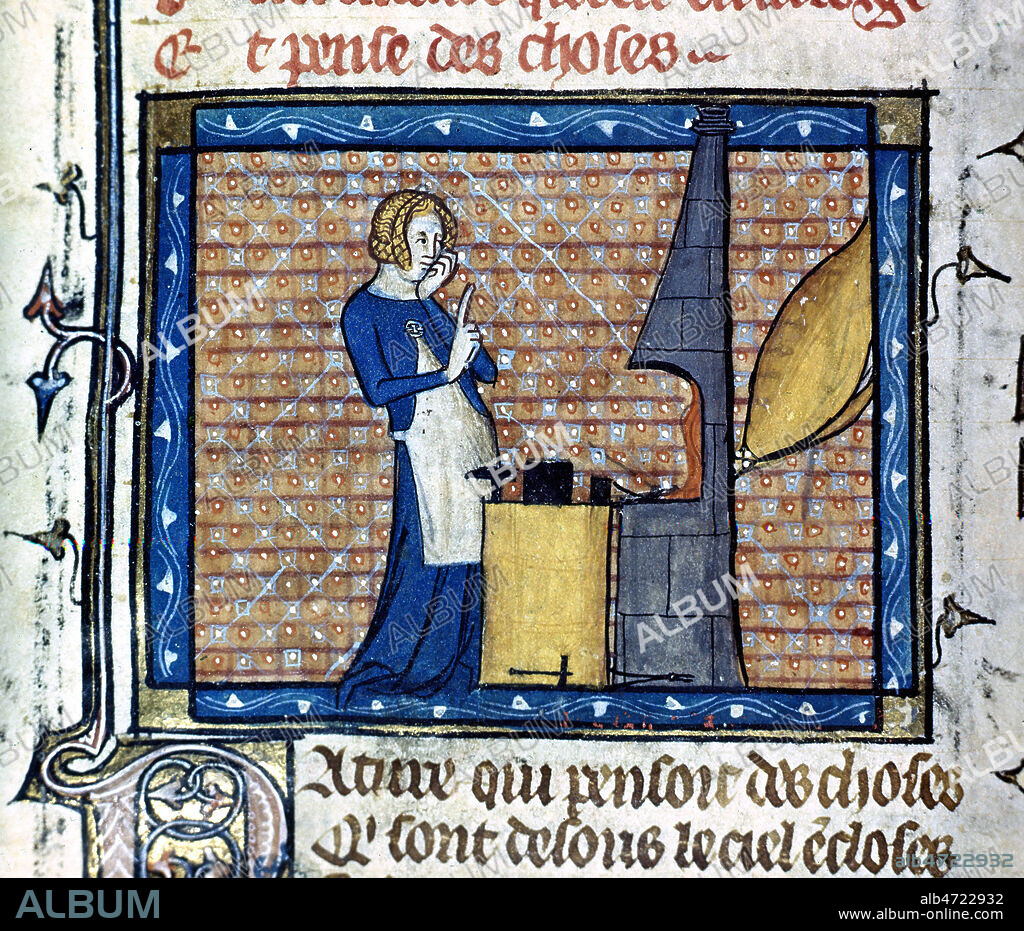 Et pense des choses
Nature qui pensoit des choses
Q' sont desous le ciel ēcloses
alb4722932
ALBUM
alb4722932
www.album-online.com